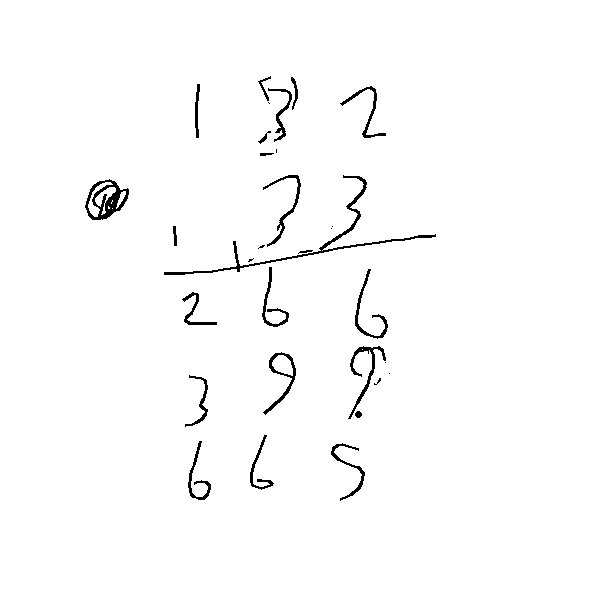 1 3 2
3 3
1 1
2 6 6
3 9 9
6 6 5